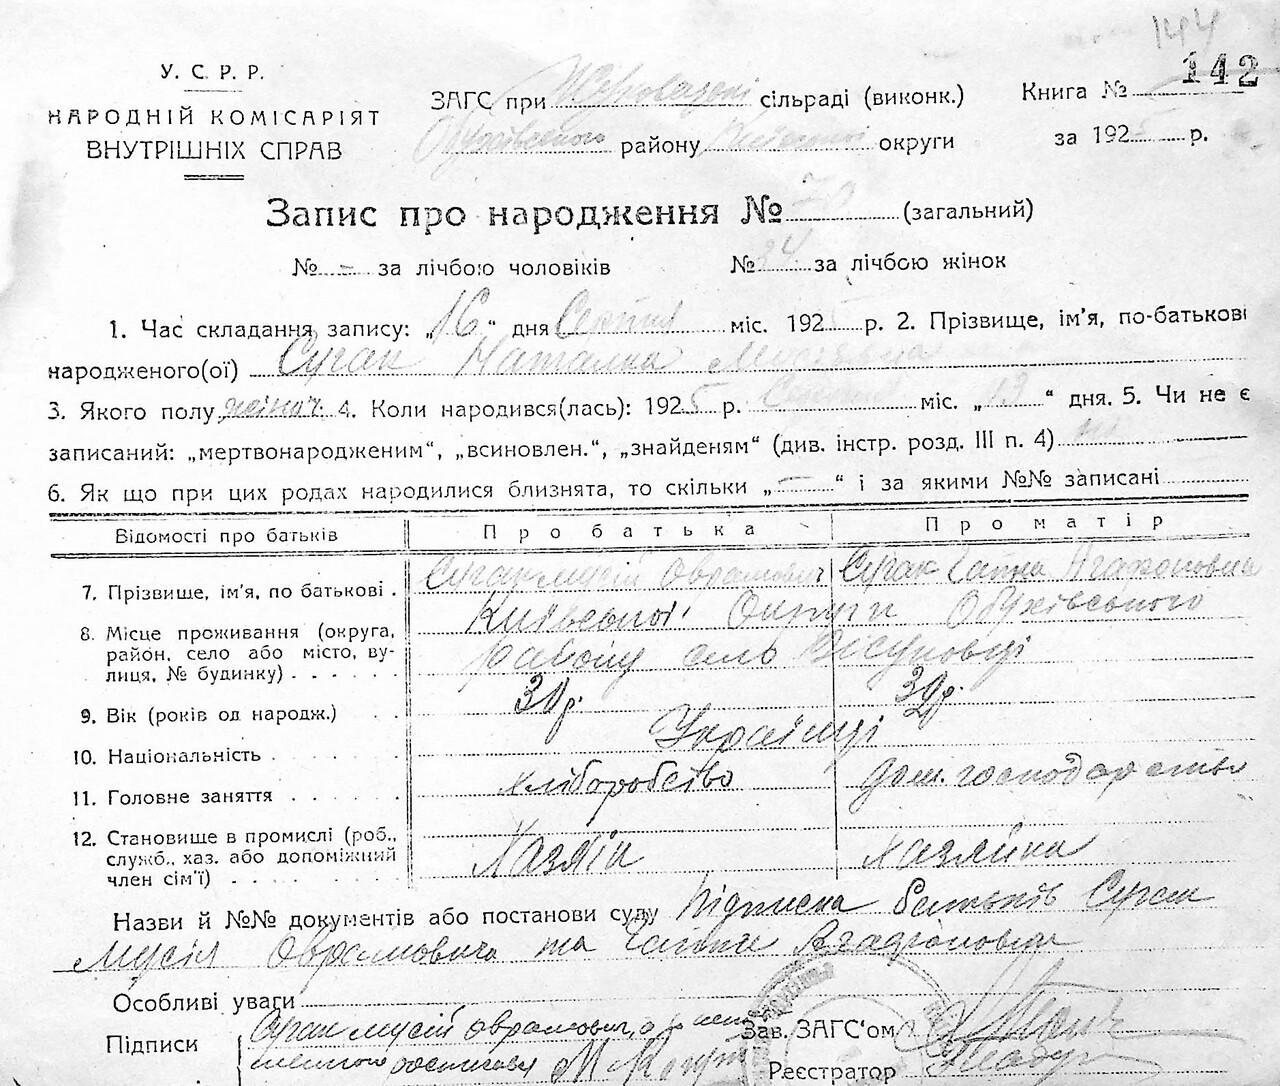 144
142
У. С. Р. Р.
НАРОДНІЙ КОМІСАРІЯТ
ВНУТРІШНІХ СПРАВ
ЗАГС при сільраді (виконк.) Книга №
Обухівського району Київської округи за 1925 р.
Запис про народження № 70 (загальний)
№ - за лічбою чоловіків № 34 за лічбою жінок
1. Час складання запису: „16“ дня Серпня міс. 192 р. 2. Прізвище, ім'я, по-батькові
народженого(ої) Сугак Наталка Мусіївна
3. Якого полу жіноч. 4. Коли народився(лась): 1925 р. Серпня міс. „13“ дня. 5. Чи не є
записаний: „мертвонародженим“, „всиновлен.“, „знайденям“ (див. інстр. розд. III п. 4) ні
6. Як що при цих родах народилися близнята, то скільки „—“ і за якими №№ записані
Відомості про батьків Про батька Про матір
7. Прізвище, ім'я, по батькові . Сугак Мусій Оврамович Сугак Ганна Агафоновна
8. Місце проживання (округа, район, село або місто, вулиця, № будинку) . . . . . . Київської Округи Обухівського
району
9. Вік (років од народж.) . . 31 р. 32 р.
10. Національність . . . . . . Українці
11. Головне заняття . . . . . . хліборобство дом. господарство
12. Становище в промислі (роб., служб., хаз. або допоміжний член сім'ї) . . . . . . Хазяїн хазяйка
Назви й №№ документів або постанови суду Підписка батьків Сугак
Мусія Оврамовича та Ганни Агафоновни
Особливі уваги
Підписи Сугак Мусій Оврамович, а
Зав. ЗАГС'ом
Реєстратор